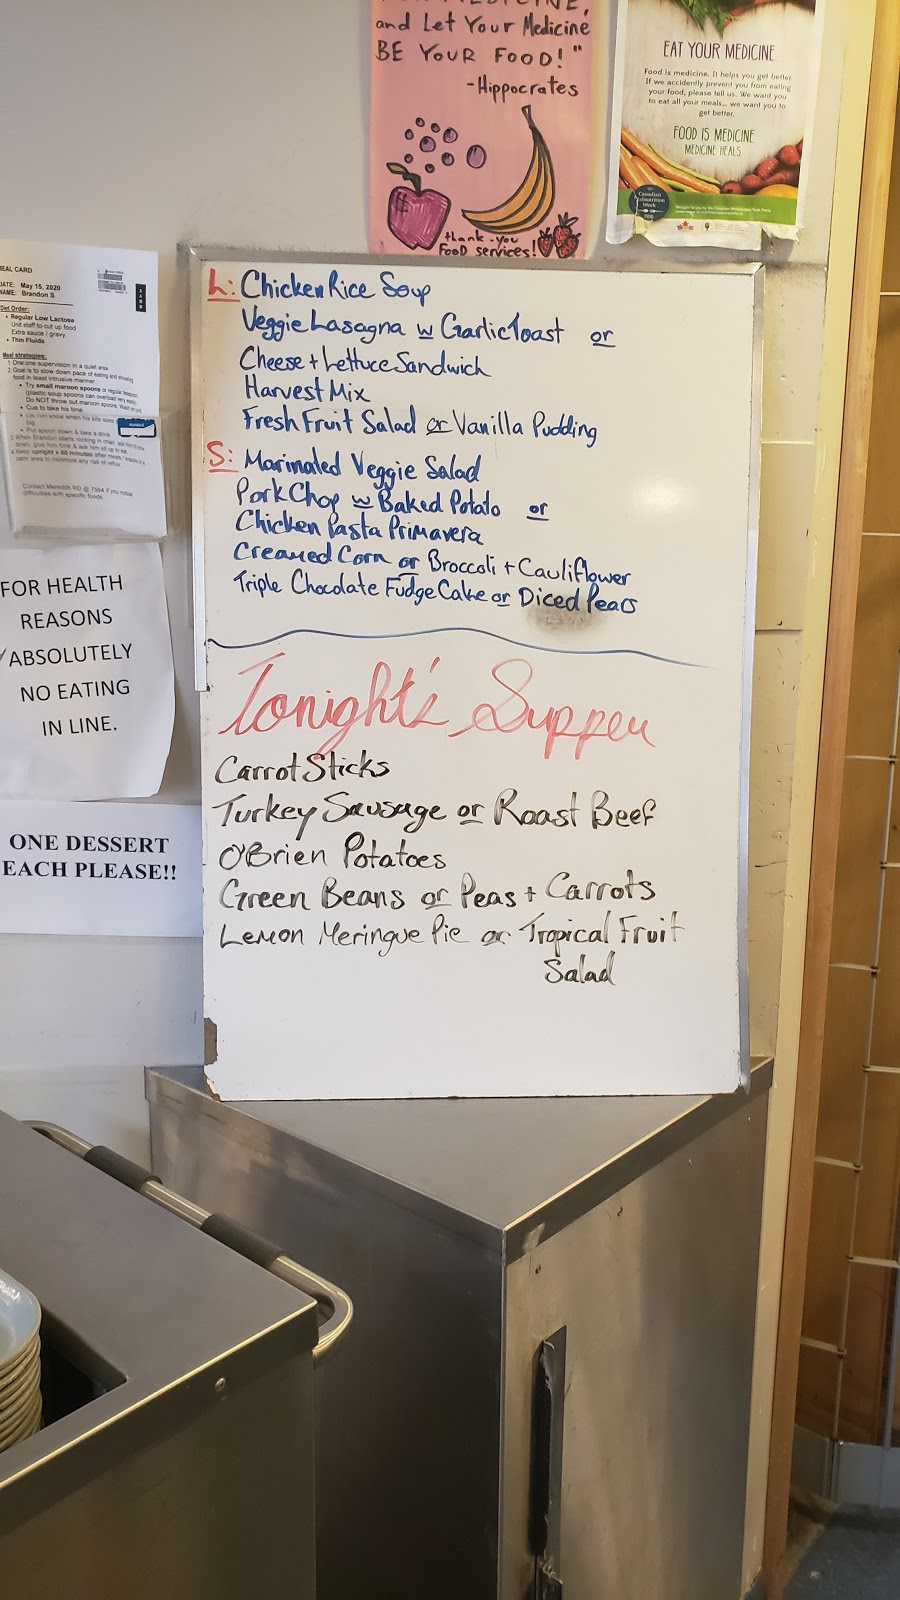 and Let Your Medicine
BE YOUR FOOD!"
-Hippocrates
thank-you
FOOD services!
EAT YOUR MEDICINE
Food is medicine. It helps you get better.
If we accidently prevent you from eating
your food, please tell us. We want you
to eat all your meals... we want you to
get better.
FOOD IS MEDICINE
MEDICINE HEALS
Canadian
Malnutrition
Week
MEAL CARD
DATE: May 15, 2020
NAME: Brandon S
Diet Order:
• Regular Low Lactose
Unit staff to cut up food
Extra sauce / gravy
• Thin Fluids
Meal strategies:
1. One:one supervision in a quiet area.
2. Goal is to slow down pace of eating and
food in least intrusive manner
• Try small maroon spoons or regular
(plastic soup spoons can overload very
Do NOT throw out maroon spoons.
• Cue to take his time
• Put spoon down & take a drink
When Brandon starts rocking in chair, ask him to
4. Keep upright x 60 minutes after meals / snacks in a
calm area to minimize any risk of reflux.
Contact Meredith RD @ 7564 if you notice
difficulties with specific foods.
FOR HEALTH
REASONS
ABSOLUTELY
NO EATING
IN LINE.
ONE DESSERT
EACH PLEASE!!
L: Chicken Rice Soup
Veggie Lasagna w Garlic Toast or
Cheese + Lettuce Sandwich
Harvest Mix
Fresh Fruit Salad or Vanilla Pudding
S: Marinated Veggie Salad
Pork Chop w Baked Potato or
Chicken Pasta Primavera
Creamed Corn or Broccoli + Cauliflower
Triple Chocolate Fudge Cake or Diced Pears
Tonight's Supper
Carrot Sticks
Turkey Sausage or Roast Beef
O'Brien Potatoes
Green Beans or Peas + Carrots
Lemon Meringue Pie or Tropical Fruit
Salad